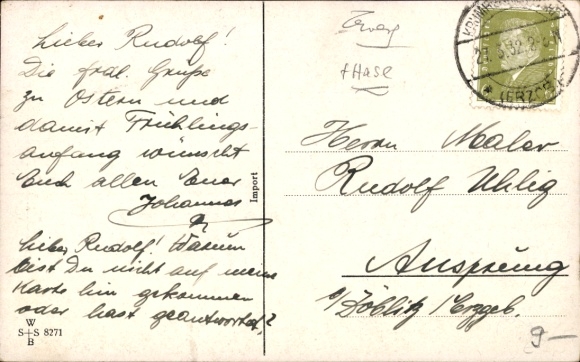 Lieber Rudolf!
Die frdl. Grüße
zu Ostern und
damit Frühlings-
anfang wünscht
Euch allen Euer
Johannes
Lieber Rudolf! Warum
bist Du nicht auf meine
Karte hin gekommen
oder hast geantwortet?
W
S+S 8271
B
Import
Zwerg
+ Hase
Herrn Maler
Rudolf Uhlig
Ansprung
b/Zöblitz /Erzgeb.
9-